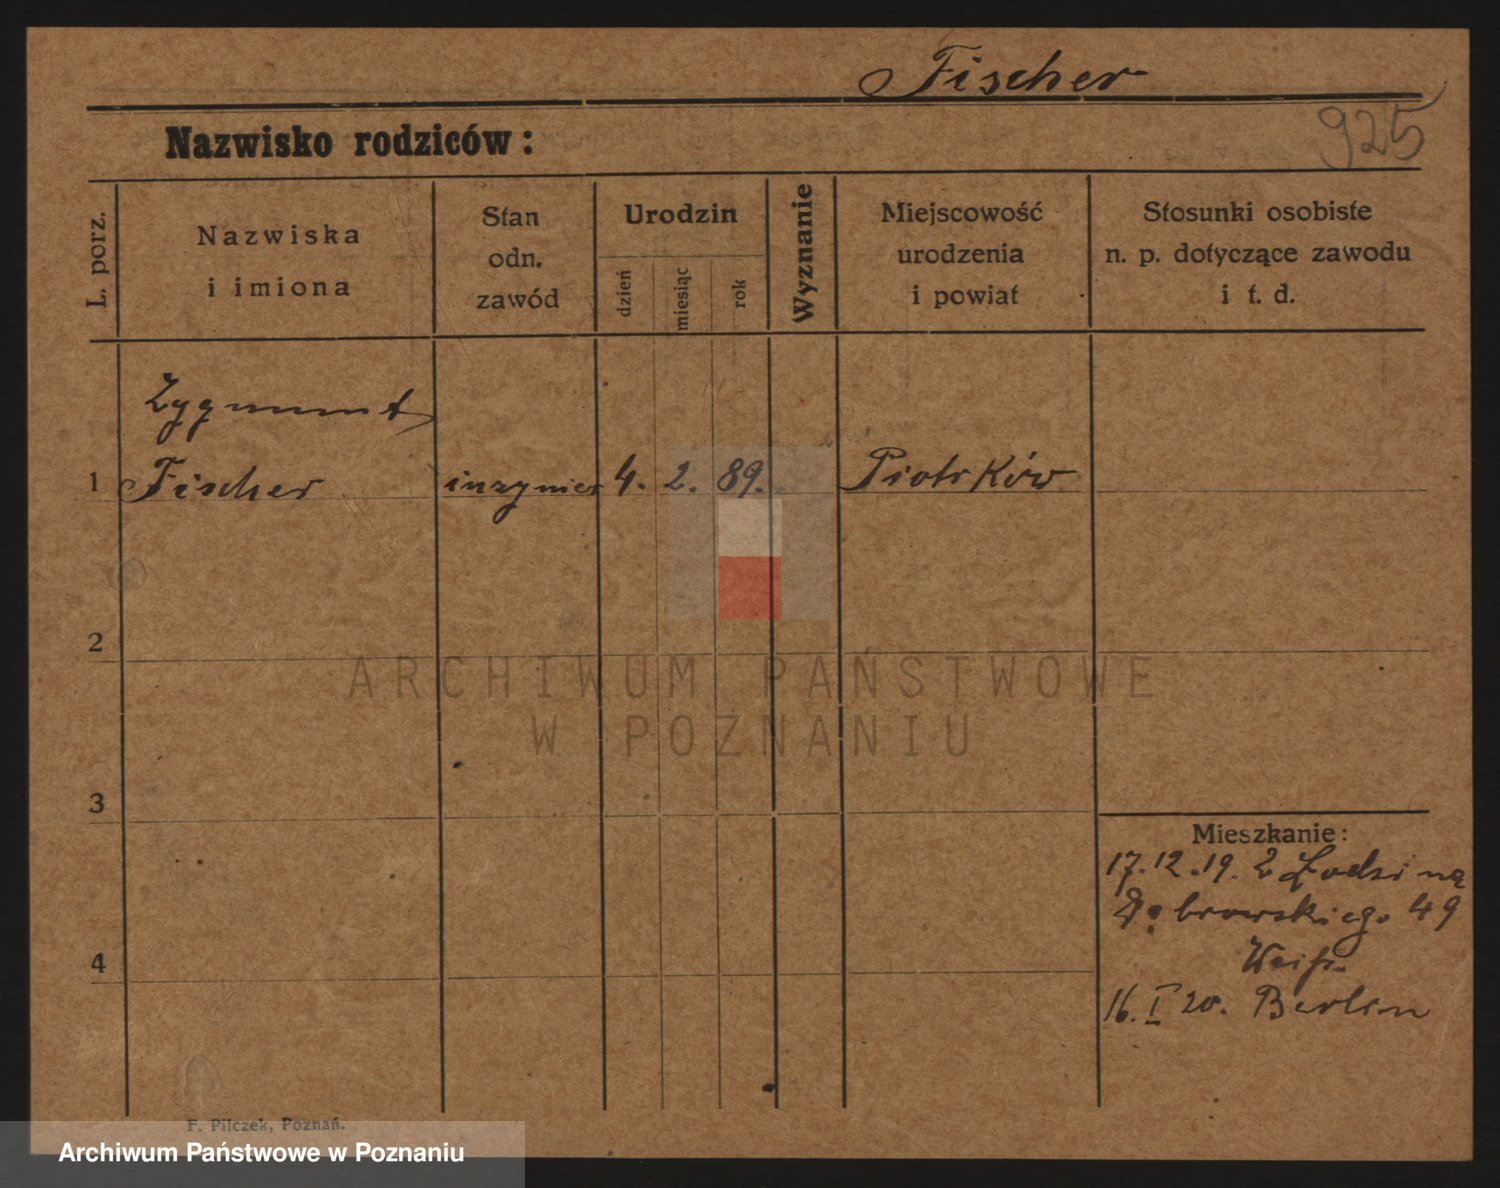 Fischer
925
Nazwisko rodziców:
L. porz.
Nazwiska
i imiona
Stan
odn.
zawód
Urodzin
dzień
miesiąc
rok
Wyznanie
Miejscowość
urodzenia
i powiat
Stosunki osobiste
n. p. dotyczące zawodu
i t. d.
Zygmunt
1 Fischer inzynier 4. 2. 89. Piotrków
2
ARCHIWUM PAŃSTWOWE
W POZNANIU
3
Mieszkanie:
17.12.19. z
Dąbrowskiego 49
4
16. I 20. Berlin
F. Pilczek, Poznań.
Archiwum Państwowe w Poznaniu